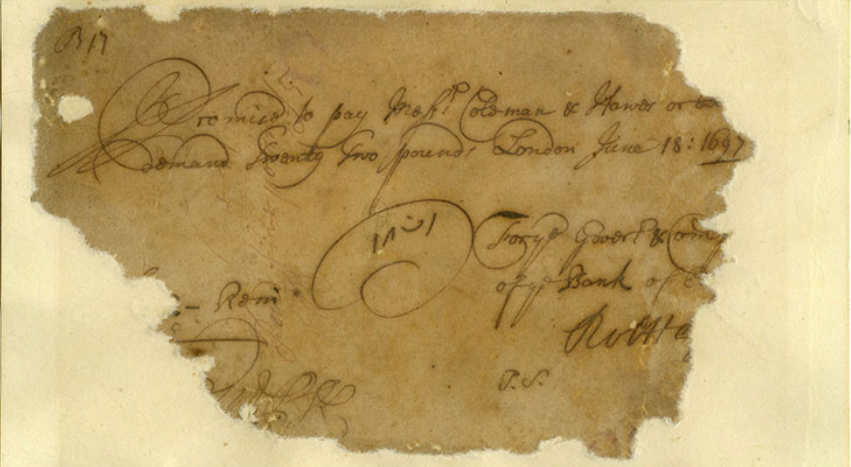 B 17
Promise to pay Mess.rs Coleman & Hawes or
demand Twenty Two pounds London June 18: 1697
For ye Govert & Com
of ye Bank of E
Rem
P.S.